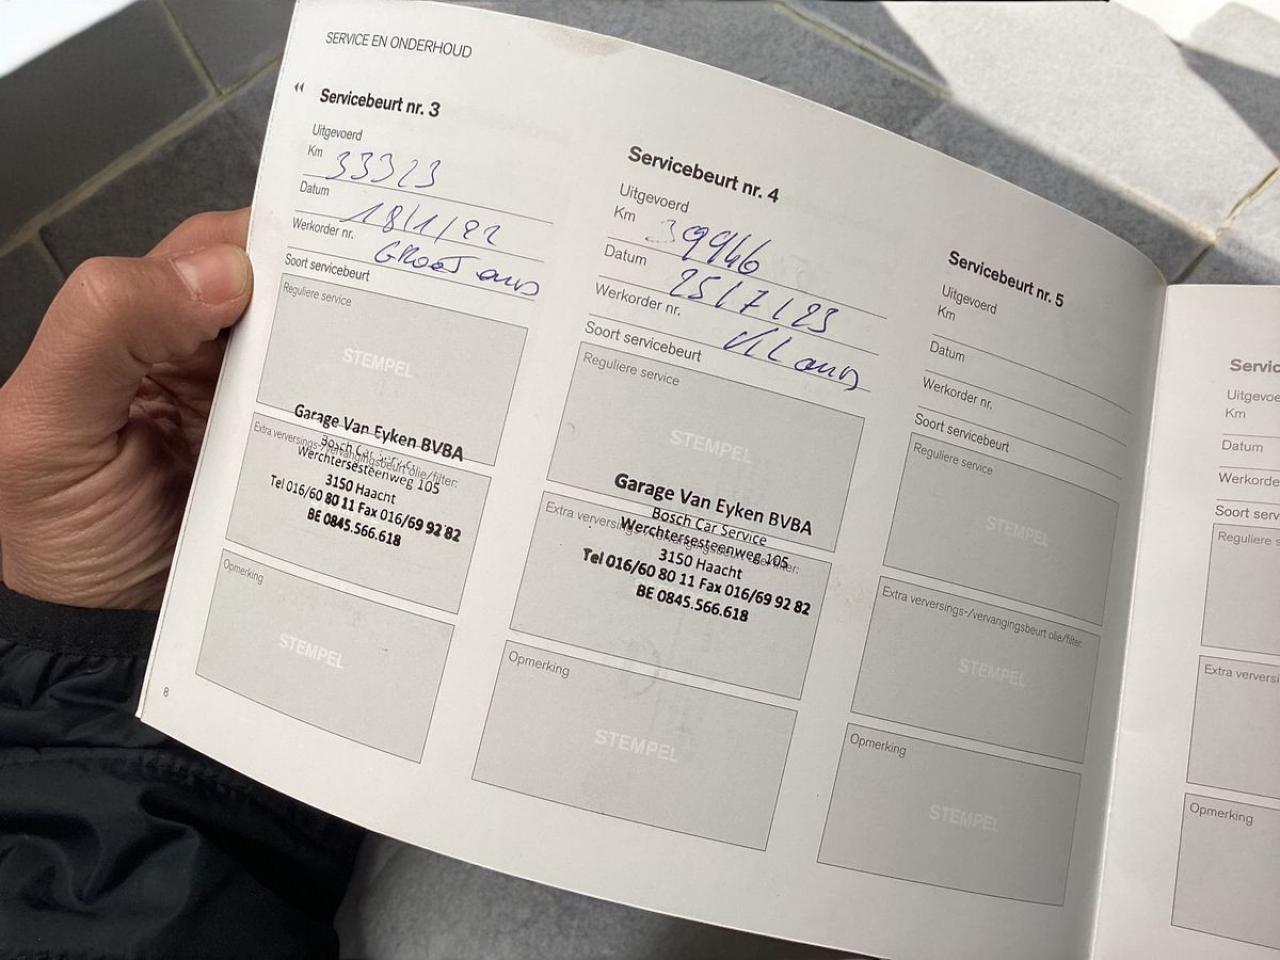 SERVICE EN ONDERHOUD
Servicebeurt nr. 3
Uitgevoerd
Km 33323
Datum 18/1/22
Werkorder nr. GROOT ond
Soort servicebeurt
Reguliere service
STEMPEL
Garage Van Eyken BVBA
Extra verversings-/vervangingsbeurt olie/filter:
Bosch Car Service
Werchtersesteenweg 105
3150 Haacht
Tel 016/60 80 11 Fax 016/69 92 82
BE 0845.566.618
Opmerking
STEMPEL
8
Servicebeurt nr. 4
Uitgevoerd
Km 39946
Datum 25/7/23
Werkorder nr. KL ond
Soort servicebeurt
Reguliere service
STEMPEL
Garage Van Eyken BVBA
Bosch Car Service
Extra verversings-/vervangingsbeurt olie/filter:
Werchtersesteenweg 105
3150 Haacht
Tel 016/60 80 11 Fax 016/69 92 82
BE 0845.566.618
Opmerking
STEMPEL
Servicebeurt nr. 5
Uitgevoerd
Km
Datum
Werkorder nr.
Soort servicebeurt
Reguliere service
STEMPEL
Extra verversings-/vervangingsbeurt olie/filter:
STEMPEL
Opmerking
STEMPEL
Servic
Uitgevoe
Km
Datum
Werkorde
Soort serv
Reguliere s
Extra verversi
Opmerking